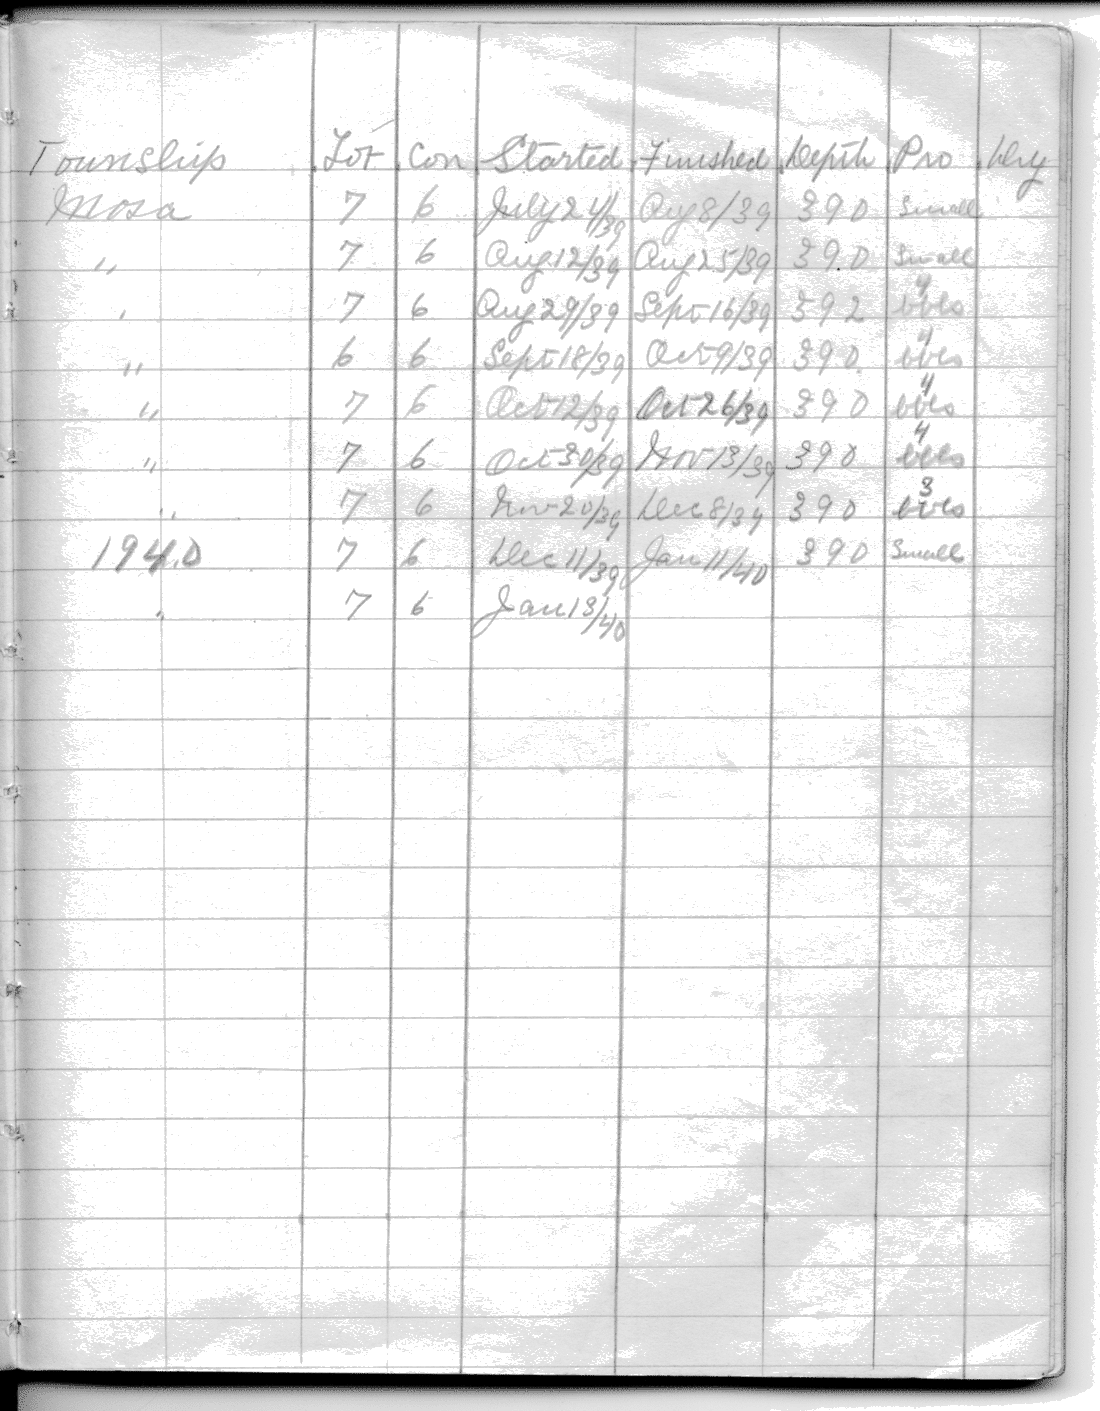 Township Lot Con Started Finished Depth Pro Dry
Mosa 7 6 July 24/39 Aug 8/39 390 Small
" 7 6 Aug 12/39 Aug 25/39 390 Small
" 7 6 Aug 29/39 Sept 16/39 392 4 bbls
" 6 6 Sept 18/39 Oct 9/39 390 4 bbls
" 7 6 Oct 12/39 Oct 26/39 390 4 bbls
" 7 6 Oct 30/39 Nov 13/39 390 4 bbls
" 7 6 Nov 20/39 Dec 8/39 390 3 bbls
1940 7 6 Dec 11/39 Jan 11/40 390 Small
" 7 6 Jan 13/40